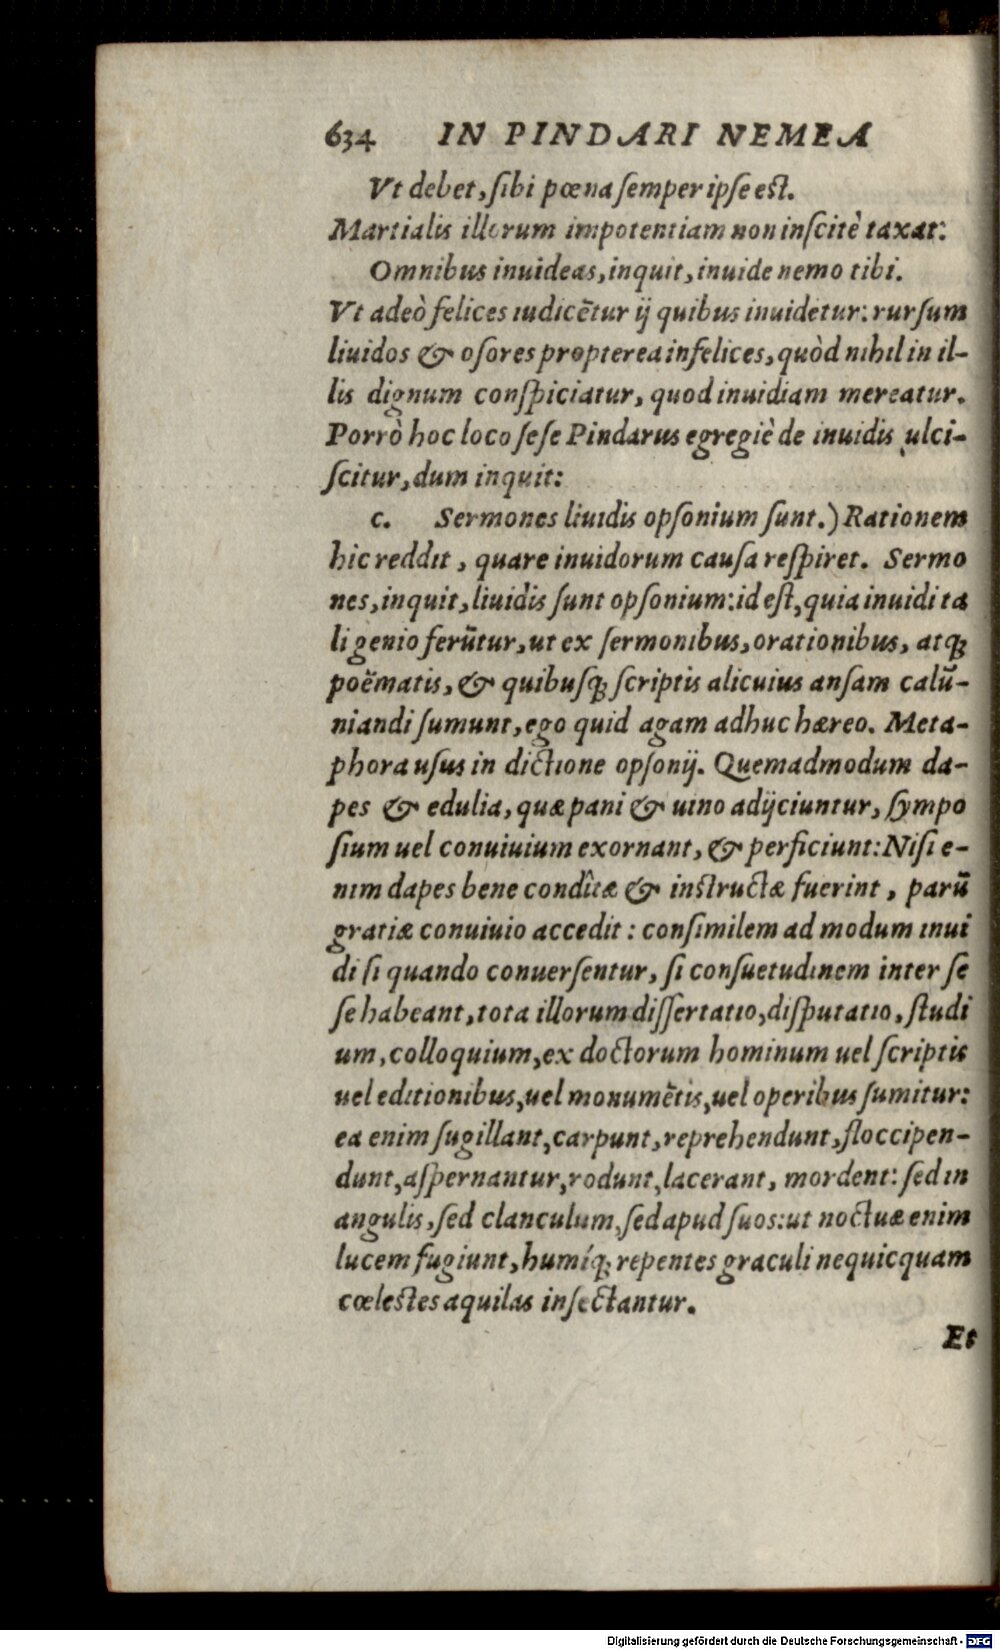 634 IN PINDARI NEMEA
Vt debet, ſibi pœna ſemper ipſe eſt.
Martialis illorum impotentiam non inſcitè taxat:
Omnibus inuideas, inquit, inuide nemo tibi.
Vt adeò felices iudicẽtur ij quibus inuidetur: rurſum
liuidos & oſores propterea infelices, quòd nihil in il-
lis dignum conſpiciatur, quod inuidiam mereatur.
Porrò hoc loco ſeſe Pindarus egregiè de inuidis ulci-
ſcitur, dum inquit:
c. Sermones liuidis opſonium ſunt.) Rationem
hic reddit, quare inuidorum cauſa reſpiret. Sermo
nes, inquit, liuidis ſunt opſonium: id eſt, quia inuidi ta
li genio ferũtur, ut ex ſermonibus, orationibus, atq;
poëmatis, & quibuſq; ſcriptis alicuius anſam calũ-
niandi ſumunt, ego quid agam adhuc hæreo. Meta-
phora uſus in dictione opſonij. Quemadmodum da-
pes & edulia, quæ pani & uino adijciuntur, ſympo
ſium uel conuiuium exornant, & perficiunt: Niſi e-
nim dapes bene condîtæ & inſtructæ fuerint, parũ
gratiæ conuiuio accedit: conſimilem ad modum inui
di ſi quando conuerſentur, ſi conſuetudinem inter ſe
ſe habeant, tota illorum diſſertatio, diſputatio, ſtudi
um, colloquium, ex doctorum hominum uel ſcriptis
uel editionibus, uel monumẽtis, uel operibus ſumitur:
ea enim ſugillant, carpunt, reprehendunt, floccipen-
dunt, aſpernantur, rodunt, lacerant, mordent: ſed in
angulis, ſed clanculum, ſed apud ſuos: ut noctuæ enim
lucem fugiunt, humíq; repentes graculi nequicquam
cœleſtes aquilas inſectantur.
Et
Digitalisierung gefördert durch die Deutsche Forschungsgemeinschaft - DFG